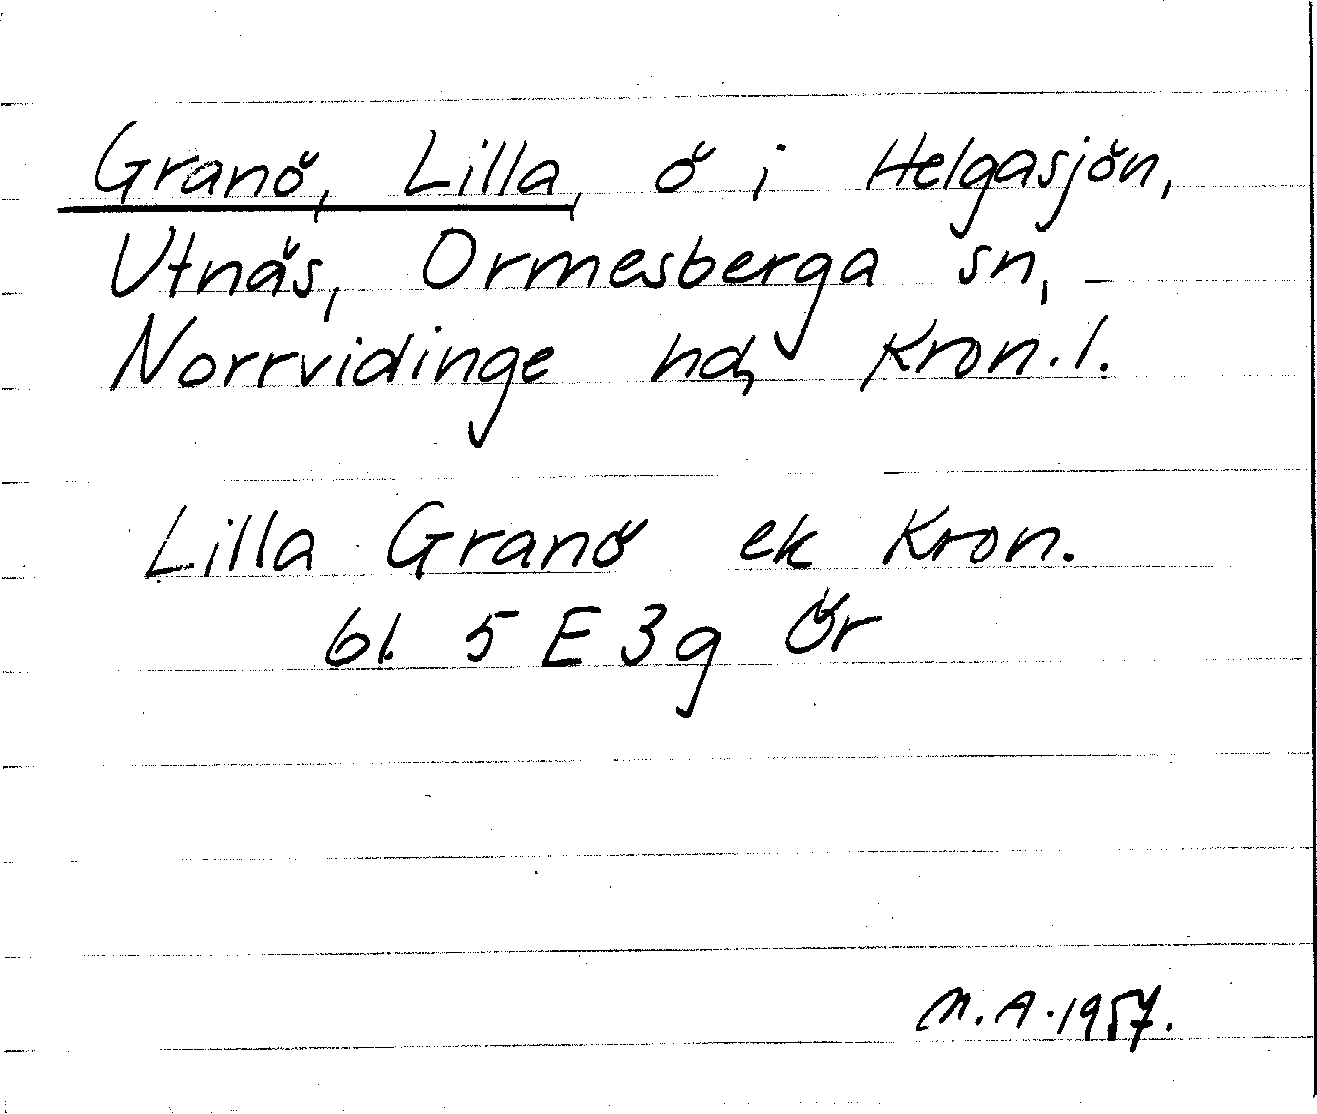 Granö, Lilla, ö i Helgasjön,
Utnäs, Ormesberga sn,
Norrvidinge hd, Kron. l.
Lilla Granö ek Kron.
bl. 5 E 3g Ör
M.A. 1957.